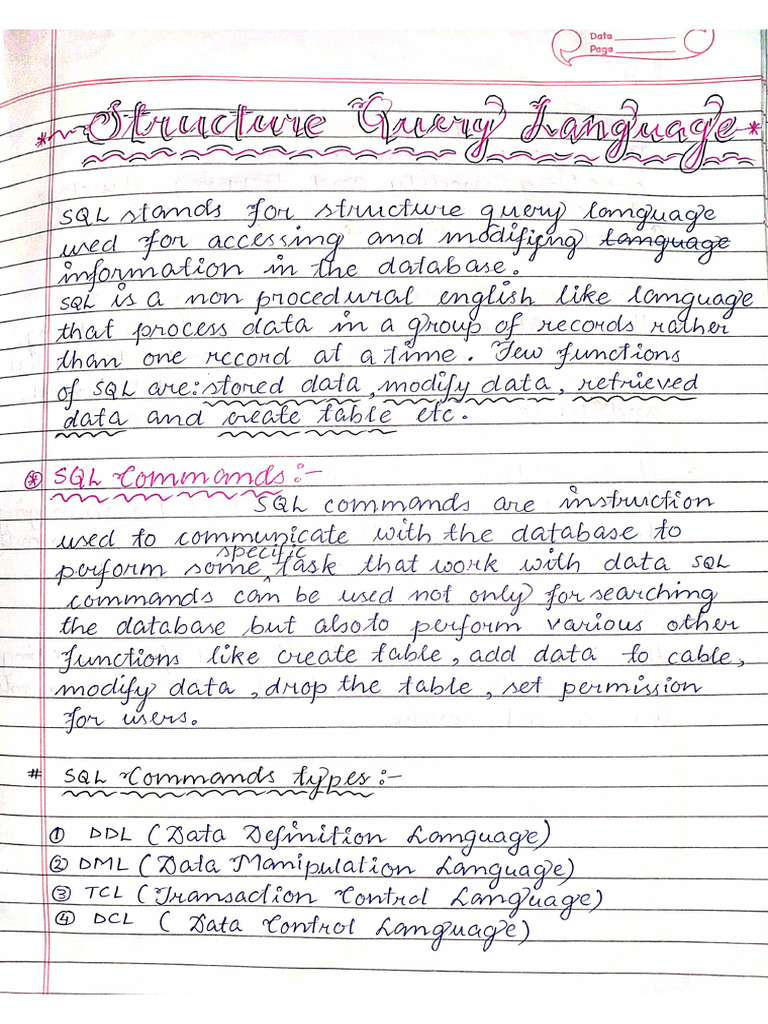 Date
Page
* Structure Query Language *
SQL stands for structure query language
used for accessing and modifying language
information in the database.
SQL is a non procedural english like language
that process data in a group of records rather
than one record at a time. Few functions
of SQL are: stored data, modify data, retrieved
data and create table etc.
* SQL Commands:-
SQL commands are instruction
used to communicate with the database to
perform some specific task that work with data SQL
commands can be used not only for searching
the database but also to perform various other
functions like create table, add data to cable,
modify data, drop the table, set permission
for users.
# SQL Commands types:-
① DDL (Data Definition Language)
② DML (Data Manipulation Language)
③ TCL (Transaction Control Language)
④ DCL ( Data Control Language)